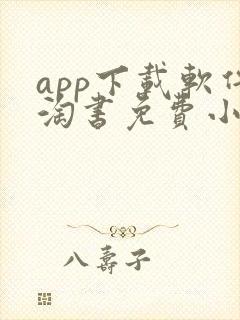 app下載軟件
淘書免費小
八壽子